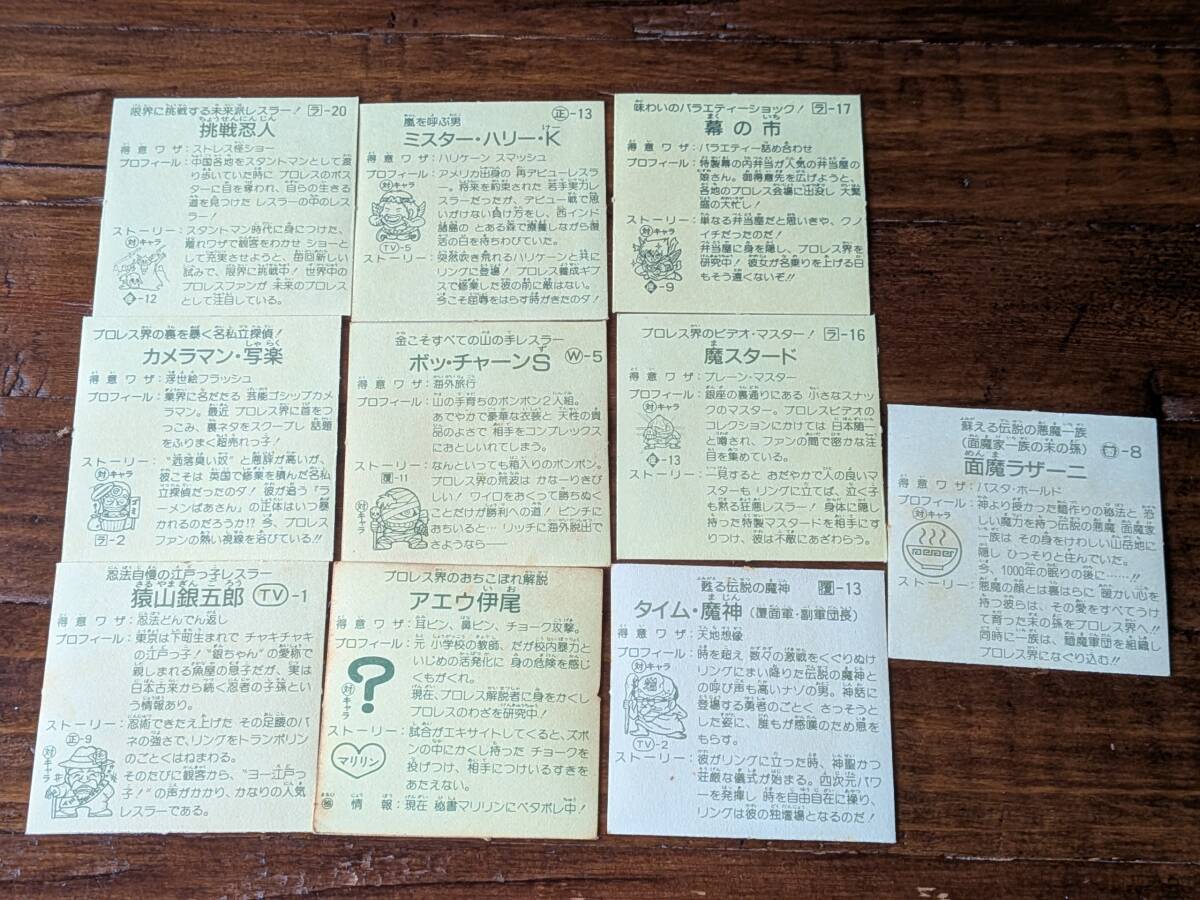 限界に挑戦する未来派レスラー! ラ-20
挑戦忍人
得意ワザ:ストレス怪ショー
プロフィール:中国各地をスタントマンとして渡
り歩いていた時に プロレスのポス
ターに目を奪われ、自らの生きる
道を見つけた レスラーの中のレス
ラー!
ストーリー:スタントマン時代に身につけた、
離れワザで観客をわかせ ショーと
して充実させようと、毎回新しい
試みで、限界に挑戦中! 世界中の
プロレスファンが 未来のプロレス
として注目している。
対キャラ
-12
嵐を呼ぶ男 正-13
ミスター・ハリー・K
得意ワザ:ハリケーン スマッシュ
プロフィール:アメリカ出身の 再デビューレスラ
ー。将来を約束された 若手実力レ
スラーだったが、デビュー戦で思
いがけない負け方をし、西インド
諸島の とある森で療養しながら復
活の日を待ちわびていた。
ストーリー:突然吹き荒れるハリケーンと共に
リングに登場! プロレス養成ギプ
スで修業した彼の前に敵はない。
今こそ屈辱をはらす時がきたのダ!
対キャラ
TV-5
味わいのバラエティーショック! ラ-17
幕の市
得意ワザ:バラエティー詰め合わせ
プロフィール:特製幕の内弁当が人気の弁当屋の
娘さん。御得意先を広げようと、
各地のプロレス会場に出没し 大繁
盛の大忙し!
ストーリー:単なる弁当屋だと思いきや、クノ
イチだったのだ!
弁当屋に身を隠し、プロレス界を
研究中! 彼女が名乗りを上げる日
もそう遠くないぞ!!
対キャラ
-9
プロレス界の裏を暴く名私立探偵!
カメラマン・写楽
得意ワザ:浮世絵フラッシュ
プロフィール:業界に名だたる 芸能ゴシップカメ
ラマン。最近 プロレス界に首をつ
っこみ、裏ネタをスクープし 話題
をふりまく超売れっ子!
ストーリー:"洒落臭い奴"と悪評が高いが、
彼こそは 英国で修業を積んだ名私
立探偵だったのダ! 彼が追う『ラ
ーメンばあさん』の正体はいつ暴
かれるのだろうか!? 今、プロレス
ファンの熱い視線を浴びている!!
対キャラ
ラ-2
金こそすべての山の手レスラー
ボッ・チャーンS W-5
得意ワザ:海外旅行
プロフィール:山の手育ちのボンボン2人組。
あでやかで豪華な衣装と 天性の貴
品のよさで 相手をコンプレックス
におとしいれてしまう。
ストーリー:なんといっても箱入りのボンボン。
プロレス界の荒波は かなーりきび
しい! ワイロをおくって勝ちぬく
ことだけが勝利への道! ピンチに
おちいると… リッチに海外脱出で
さようなら──
覆-11
対キャラ
プロレス界のビデオ・マスター! ラ-16
魔スタード
得意ワザ:ブレーン・マスター
プロフィール:銀座の裏通りにある 小さなスナッ
クのマスター。プロレスビデオの
コレクションにかけては 日本随一
と噂され、ファンの間で密かな注
目を集めている。
ストーリー:一見すると おだやかで人の良いマ
スターも リングに立てば、泣く子
も黙る狂悪レスラー! 身体に隠し
持った特製マスタードを相手にす
りつけ、彼は不敵にあざわらう。
対キャラ
-13
蘇える伝説の悪魔一族
(面魔家一族の末の孫) -8
面魔ラザーニ
得意ワザ:パスタ・ホールド
プロフィール:神より授かった麺作りの秘法と 恐
しい魔力を持つ伝説の悪魔 面魔家
一族は その身をけわしい山岳地に
隠し ひっそりと住んでいた。
今、1000年の眠りの後に……!!
ストーリー:悪魔の顔とは裏はらに 暖かい心を
持つ彼らは、その愛をすべてうけ
て育った末の孫をプロレス界へ!!
同時に一族は、麺魔軍団を組織し
プロレス界になぐり込む!!
対キャラ
忍法自慢の江戸っ子レスラー
猿山銀五郎 TV-1
得意ワザ:忍法どんでん返し
プロフィール:東京は下町生まれで チャキチャキ
の江戸っ子! "銀ちゃん"の愛称で
親しまれる魚屋の息子だが、実は
日本古来から続く忍者の子孫とい
う情報あり。
ストーリー:忍術できたえ上げた その足腰のバ
ネの強さで、リングをトランポリン
のごとくはねまわる。
そのたびに観客から、"ヨー江戸っ
子!"の声がかかり、かなりの人気
レスラーである。
正-9
対キャラ
プロレス界のおちこぼれ解説
アエウ伊尾
得意ワザ:耳ピン、鼻ピン、チョーク攻撃。
プロフィール:元 小学校の教師、だが校内暴力と
いじめの活発化に 身の危険を感じ
くもがくれ。
現在、プロレス解説者に身をかくし
プロレスのわざを研究中!
対キャラ
?
ストーリー:試合がエキサイトしてくると、ズボ
ンの中にかくし持った チョークを
投げつけ、相手につけいるすきを
あたえない。
マリリン
㊙情報:現在 秘書マリリンにベタボレ中!
甦る伝説の魔神 覆-13
タイム・魔神(覆面軍・副軍団長)
得意ワザ:天地想像
プロフィール:時を超え 数々の激戦をくぐりぬけ
リングにまい降りた伝説の魔神と
の呼び声も高いナゾの男。神話に
登場する勇者のごとく さっそうと
した姿に、誰もが感嘆のため息を
もらす。
ストーリー:彼がリングに立った時、神聖かつ
荘厳な儀式が始まる。四次元パワ
ーを発揮し 時を自由自在に操り、
リングは彼の独壇場となるのだ!
対キャラ
TV-2